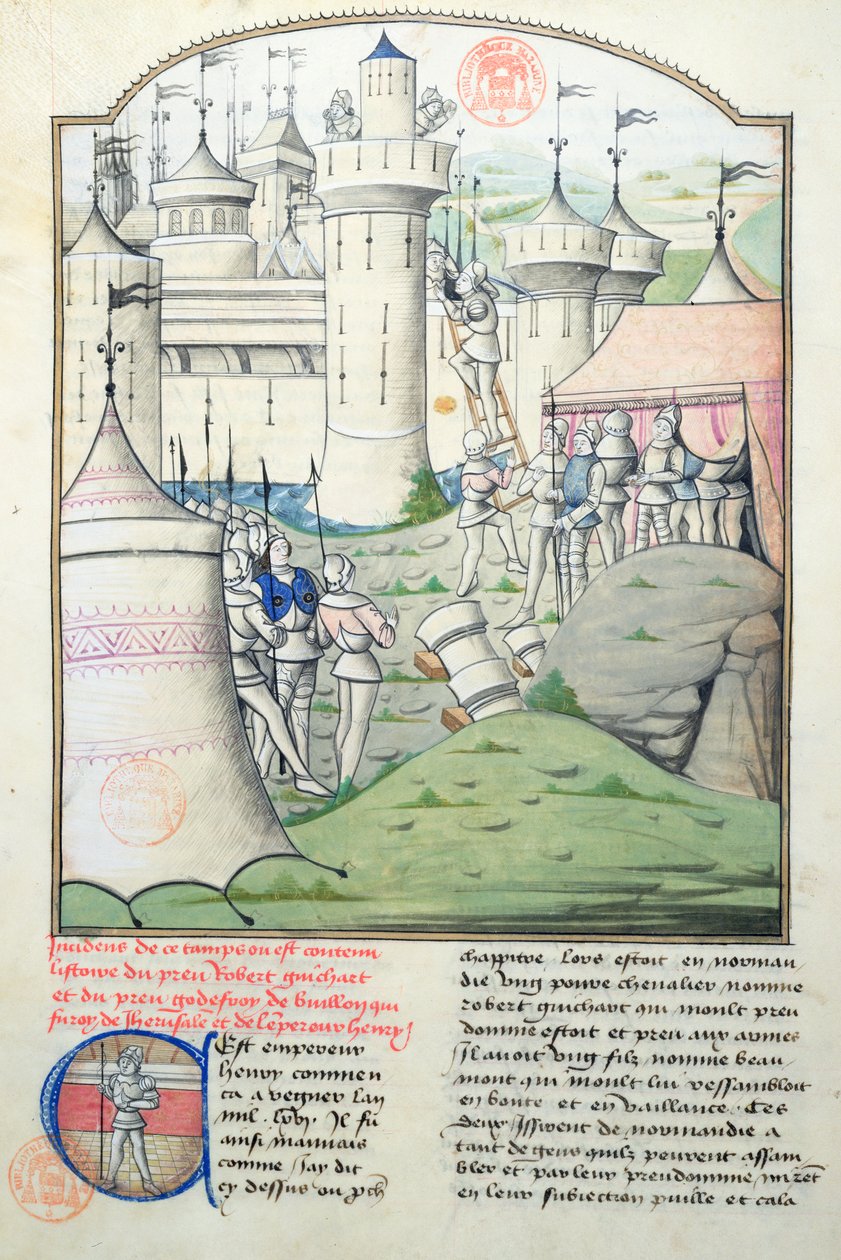 BIBLIOTHEQUE MAZARINE
Incidens de ce tamps ou est contenu
listoire du preu Robert guichart
et du preu godefroy de buillon qui
fu roy de Jherusale et de lempereur henry
Cest empereur
henry commen
ca a regner lan
mil . lxvi . Il fu
ainsi mauuais
comme Jay dit
cy dessus ou pch
chappitre . Lors estoit en norman
die vng poure cheualier nomme
robert guichart qui moult preu
domme estoit et preu aux armes
Il auoit vng filz nomme beau
mont qui moult lui ressambloit
en bonte et en vaillance . Ces
deux Issirent de normandie a
tant de gens quilz peurent assam
bler et par leur preudomme mirēt
en leur subiection puille et cala
BIBLIOTHEQUE MAZARINE